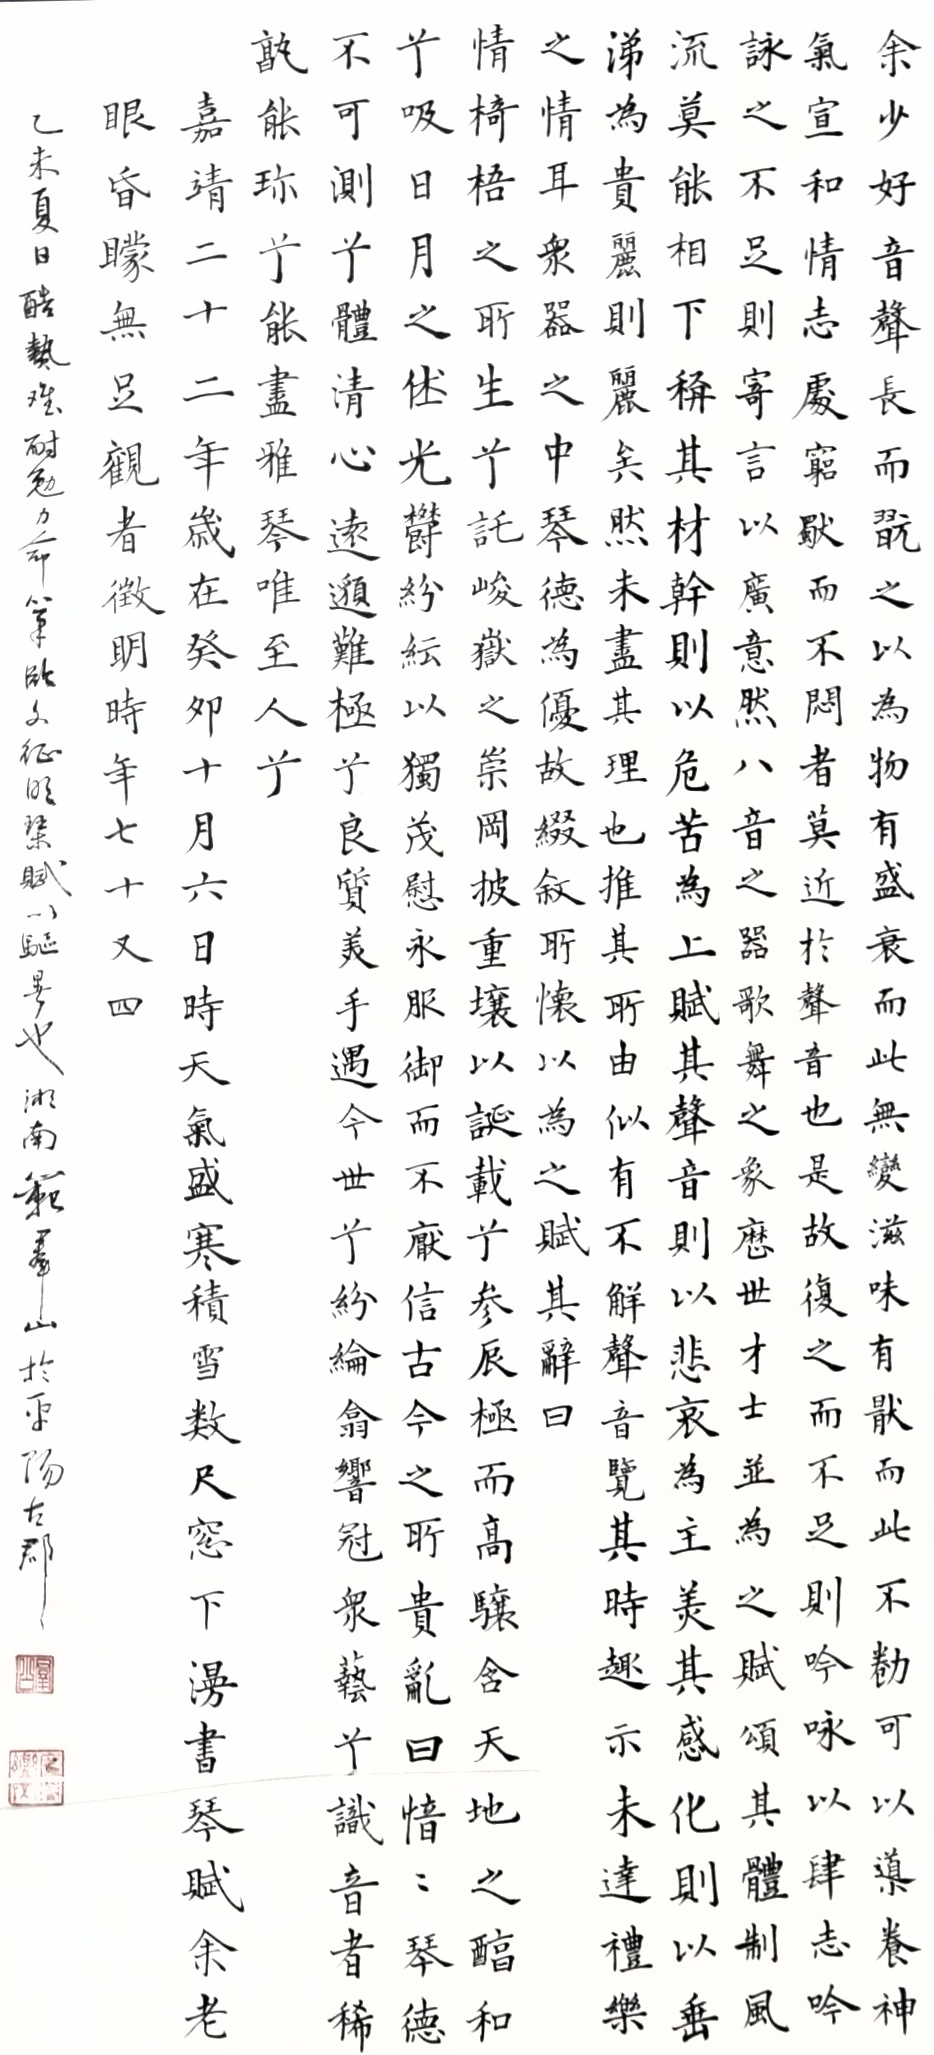 余少好音聲長而翫之以為物有盛衰而此無變滋味有猒而此不勌可以導養神
氣宣和情志處窮獸而不悶者莫近於聲音也是故復之而不足則吟咏以肆志吟
詠之不足則寄言以廣意然八音之器歌舞之象歷世才士並為之賦頌其體制風
流莫能相下稱其材幹則以危苦為上賦其聲音則以悲哀為主美其感化則以垂
涕為貴麗則麗矣然未盡其理也推其所由似有不解聲音覽其時趣示未達禮樂
之情耳眾器之中琴德為優故綴敘所懷以為之賦其辭曰
情椅梧之所生兮託峻嶽之崇岡披重壤以誕載兮參辰極而高驤含天地之醕和
兮吸日月之休光鬱紛紜以獨茂慰永服御而不厭信古今之所貴亂曰愔〻琴德
不可測兮體清心遠邈難極兮良質美手遇今世兮紛綸翕響冠眾藝兮識音者稀
孰能珎兮能盡雅琴唯至人兮
嘉靖二十二年歲在癸卯十月六日時天氣盛寒積雪数尺窓下漫書琴賦余老
眼昏矇無足觀者徵明時年七十又四
乙未夏日酷熱难耐勉力命筆臨文征明琴賦以驅暑也湖南 羣山於平陽古郡